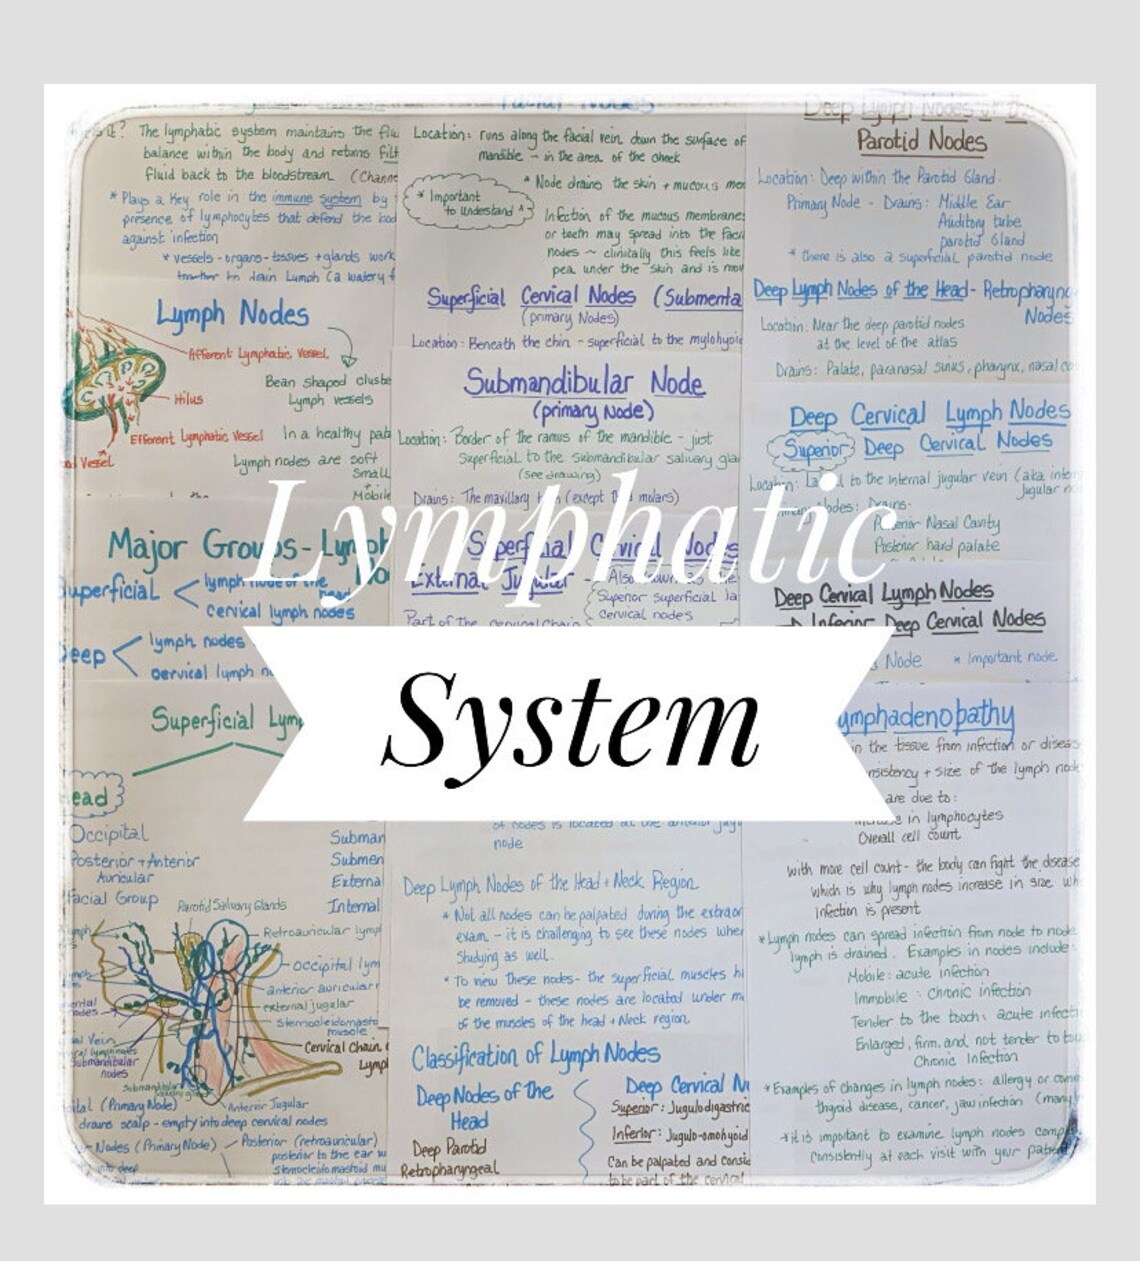 Lymphatic
System
The lymphatic system maintains the flu
balance within the body and returns filt
fluid back to the bloodstream (Channe
* Plays a key role in the immune system by
presence of lymphocytes that defend the bod
against infection
* vessels - organs - tissues + glands work
together to drain Lymph (a watery f
Lymph Nodes
Afferent Lymphatic Vessel
Hilus
Efferent Lymphatic Vessel
Vessel
Bean shaped cluste
Lymph vessels
In a healthy pati
Lymph nodes are soft
Small
+
Mobile
Major Groups - Lymph
No
Superficial
lymph node of the
head
cervical lymph nodes
Deep
lymph nodes
cervical lymph n
Superficial Lym
ead
Occipital
Posterior + Anterior
Auricular
Facial Group
Subman
Submen
Externa
Internal
Parotid Salivary Glands
Retroauricular lymp
occipital lym
anterior auricular
external jugular
Sternocleidomasto
muscle
Cervical Chain
Lymp
Submandibular
nodes
Anterior Jugular
ital (Primary Node)
drains scalp - empty into deep cervical nodes
- Nodes (Primary Node)
Posterior (retroauricular)
posterior to the ear w
sternocleidomastoid mu
Facial Nodes
Location: runs along the facial vein down the surface of
mandible - in the area of the cheek
* Important
to understand
* Node drains the skin + mucous me
Infection of the mucous membrane
or teeth may spread into the faci
nodes ~ clinically this feels like
pea under the skin and is mov
Superficial Cervical Nodes (Submenta
(primary Nodes)
Location: Beneath the chin - superficial to the mylohyoid
Submandibular Node
(primary Node)
Location: Border of the ramus of the mandible - just
superficial to the submandibular salivary gla
(see drawing)
Drains: The maxillary (except molars)
Superficial Cervical Nodes
External Jugular
Also known as the
Superior superficial la
cervical nodes
Part of the cervical chain
of nodes is located at the anterior jug
node
Deep Lymph Nodes of the Head + Neck Region
* Not all nodes can be palpated during the extraor
exam - it is challenging to see these nodes when
studying as well.
* To view these nodes - the superficial muscles
be removed - these nodes are located under m
of the muscles of the head + Neck region
Classification of Lymph Nodes
Deep Nodes of the
Head
Deep Parotid
Retropharyngeal
Deep Cervical N
Superior: Jugulodigastric
Inferior: Jugulo-omohyoid
Can be palpated and consid
to be part of the cervical
Deep Lymph Nodes of the
Parotid Nodes
Location: Deep within the Parotid Gland.
Primary Node - Drains: Middle Ear
Auditory tube
parotid Gland
* there is also a superficial parotid node
Deep Lymph Nodes of the Head - Retropharyng
Nodes
Location: Near the deep parotid nodes
at the level of the atlas
Drains: Palate, paranasal sinus, pharynx, nasal ca
Deep Cervical Lymph Nodes
Superior Deep Cervical Nodes
Location: to the internal jugular vein (aka inter
jugular no
Nodes: Drains:
Posterior Nasal Cavity
Posterior hard palate
Deep Cervical Lymph Nodes
→ Inferior Deep Cervical Nodes
Node * Important node
ymphadenopathy
in the tissue from infection or diseas
nsistency + size of the lymph node
are due to:
in lymphocytes
Overall cell count
with more cell count - the body can fight the disease
which is why lymph nodes increase in size wh
infection is present
* Lymph nodes can spread infection from node to node
lymph is drained. Examples in nodes include
Mobile: acute infection
Immobile: chronic infection
Tender to the touch: acute infecti
Enlarged, firm, and not tender to tou
Chronic Infection
* Examples of changes in lymph nodes: allergy or
thyroid disease, cancer, jaw infection (many
* it is important to examine lymph nodes comp
consistently at each visit with your patien